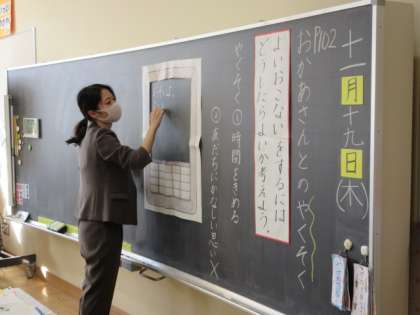 十一月十九日(木)
P102
おかあさんとのやくそく
よいおこないをするには
どうしたらよいか考えよう。
やくそく①時間をきめる
②友だちにかなしい思い×